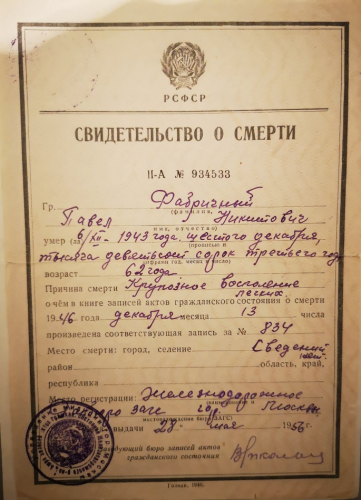 РСФСР
СВИДЕТЕЛЬСТВО О СМЕРТИ
II-А № 934533
Гр. Фабричный
(фамилия,
Павел Никитович
имя, отчество)
умер (ла) 6/XII - 1943 года шестого декабря,
(прописью и
тысяча девятьсот сорок третьего года
цифрами год, месяц и число)
возраст 62 года.
Причина смерти Крупозное воспаление
легких.
о чём в книге записей актов гражданского состояния о смерти
1946 года декабря месяца 13 числа
произведена соответствующая запись за № 834
Место смерти: город, селение Сведений
нет.
район область, край,
республика
Место регистрации: Железнодорожное
бюро загс гор. Москвы
выдачи 28 1956
заведующий бюро записей актов
гражданского состояния
Гознак, 1946.